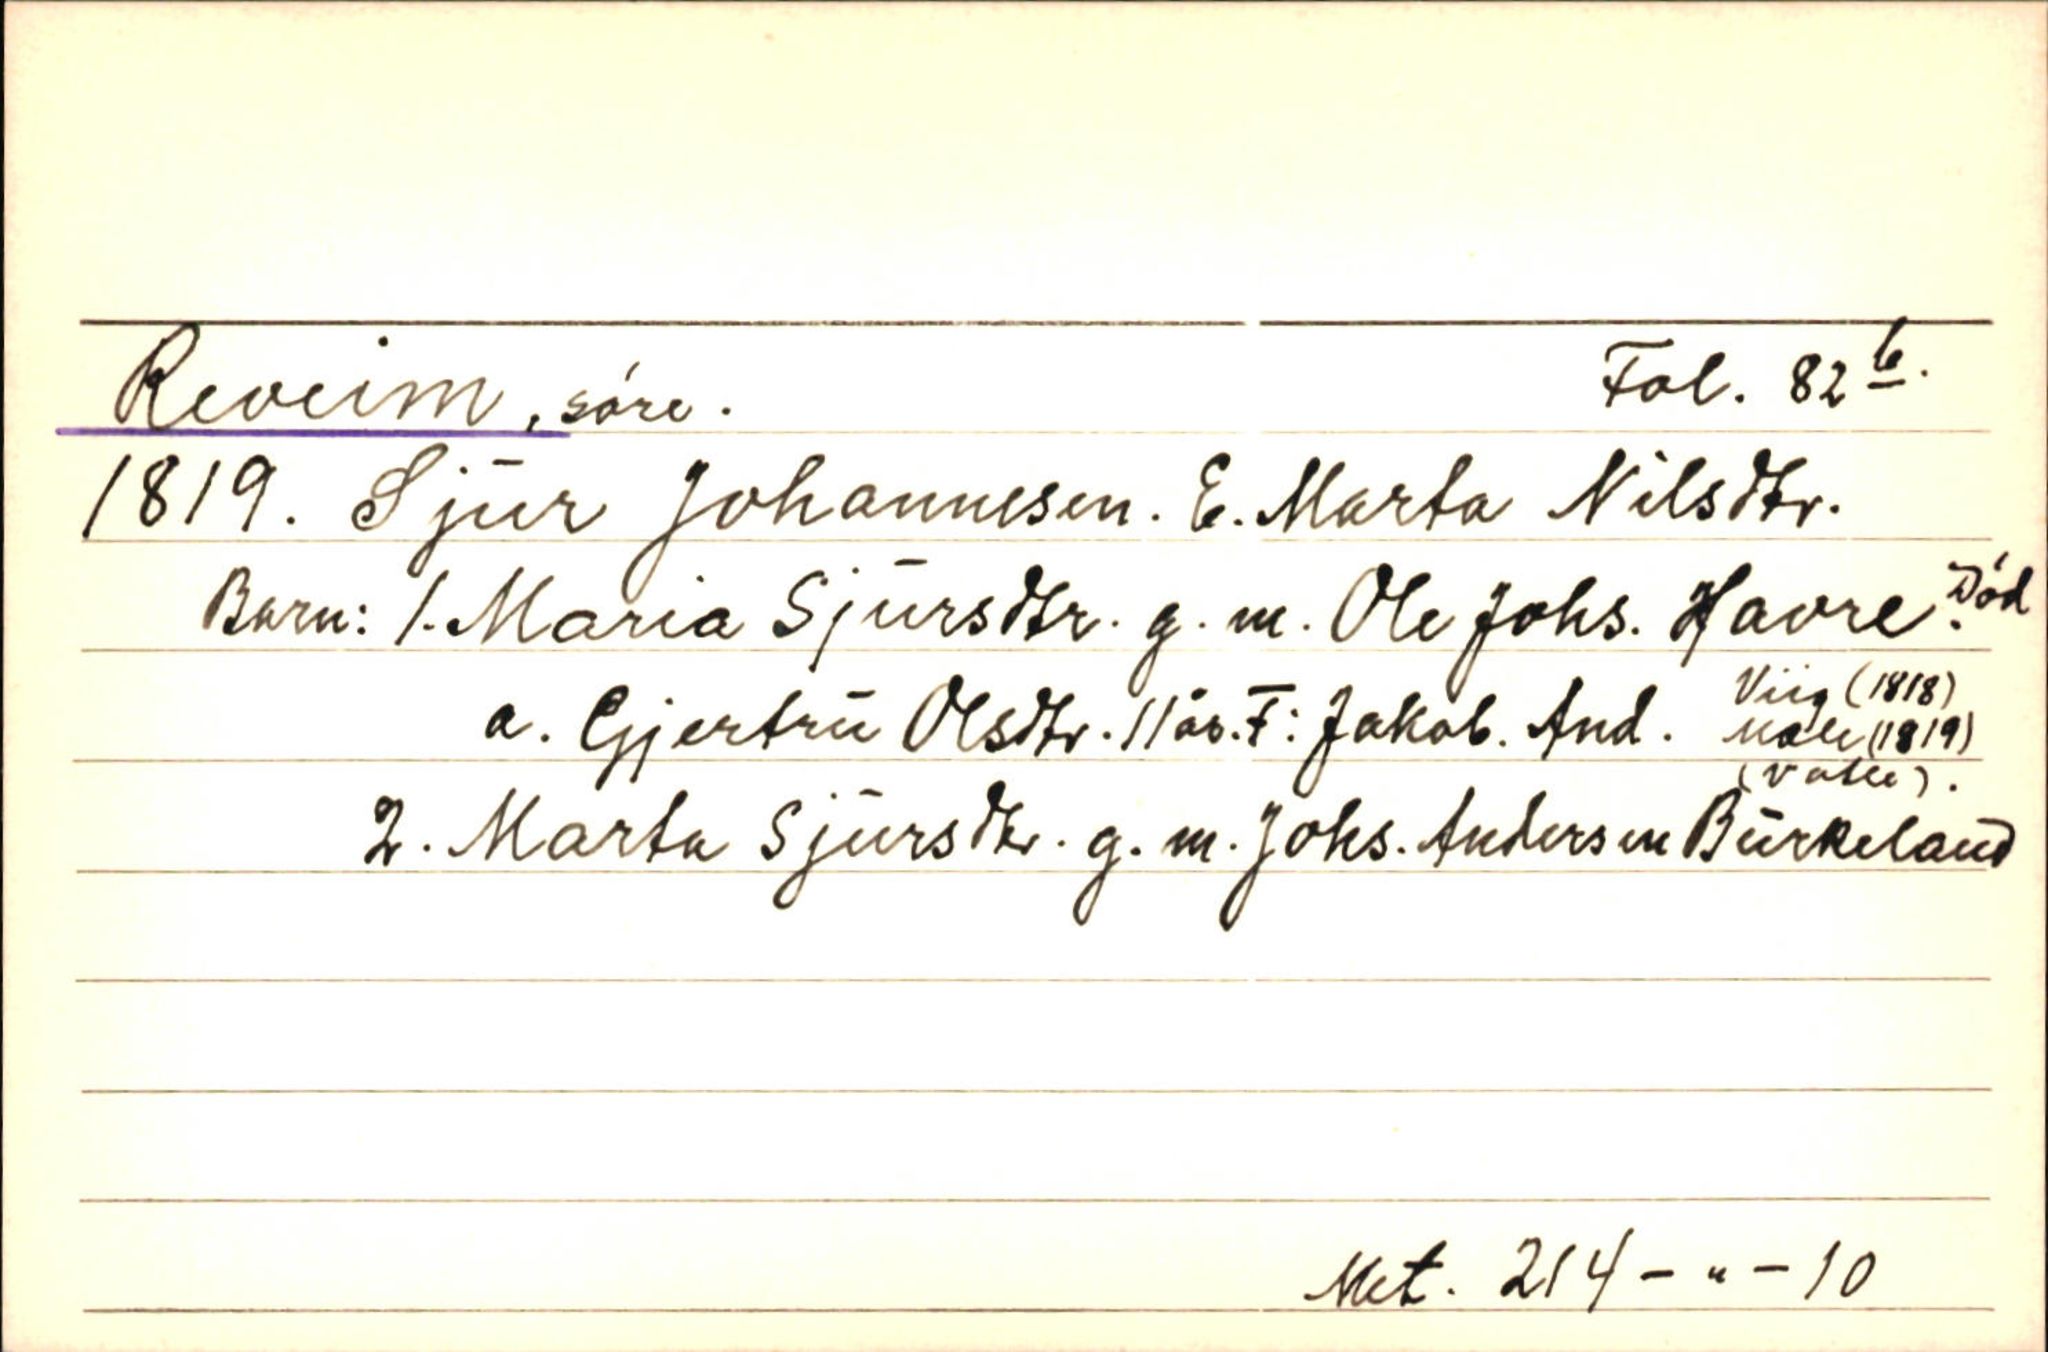 Reveim, søre. Fol. 82 b.
1819. Sjur Johannesen. E. Marta Nilsdtr.
Barn: 1. Maria Sjursdtr. g. m. Ole Johs. Havre. Død
a. Gjertru Olsdtr. 11 år. F: Jakob. And. Viig (1818)
(1819)
2. Marta Sjursdtr. g. m. Johs. Andersen Burkeland
Met. 214 - " - 10